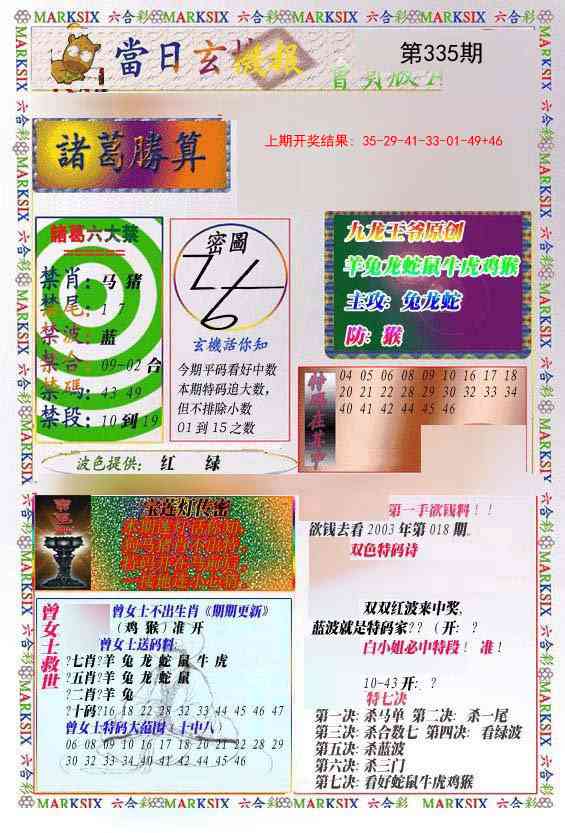 MARKSIX 六合彩 MARKSIX 六合彩 MARKSIX 六合彩 MARKSIX 六合彩
當日玄机
第335期
諸葛勝算
上期开奖结果: 35-29-41-33-01-49+46
諸葛六大禁
禁肖: 马 猪
禁尾: 1 7
禁波: 蓝
禁合: 09-02 合
禁碼: 43 49
禁段: 10 到 19
密圖
玄機活你知
今期平码看好中数
本期特码追大数,
但不排除小数
01 到 15 之数
九龙王爷原创
羊兔龙蛇鼠牛虎鸡猴
主攻: 兔龙蛇
防: 猴
特碼在其中
04 05 06 08 09 10 16 17 18
20 21 22 28 29 30 32 33 34
40 41 42 44 45 46
波色提供: 红 绿
宝莲灯传密
第一手欲钱料!!
欲钱去看 2003 年第 018 期。
双色特码诗
双双红波来中奖,
蓝波就是特码家?? (开: ?
白小姐必中特段! 准!
10-43 开: ?
特七决
第一决: 杀马单 第二决: 杀一尾
第三决: 杀合数七 第四决: 看绿波
第五决: 杀蓝波
第六决: 杀三门
第七决: 看好蛇鼠牛虎鸡猴
曾女士救世
曾女士不出生肖《期期更新》
(鸡 猴) 准 开
曾女士送码料:
?七肖?羊 兔 龙 蛇 鼠 牛 虎
?五肖?羊 兔 龙 蛇 鼠
?二肖?羊 兔
?十码?16 18 22 28 32 33 44 45 46 47
曾女士特码大范围 (十中八)
06 08 09 10 16 18 20 21 22 28 29
30 32 33 34 40 41 42 44 45 46
MARKSIX 六合彩 MARKSIX 六合彩 MARKSIX 六合彩 MARKSIX 六合彩